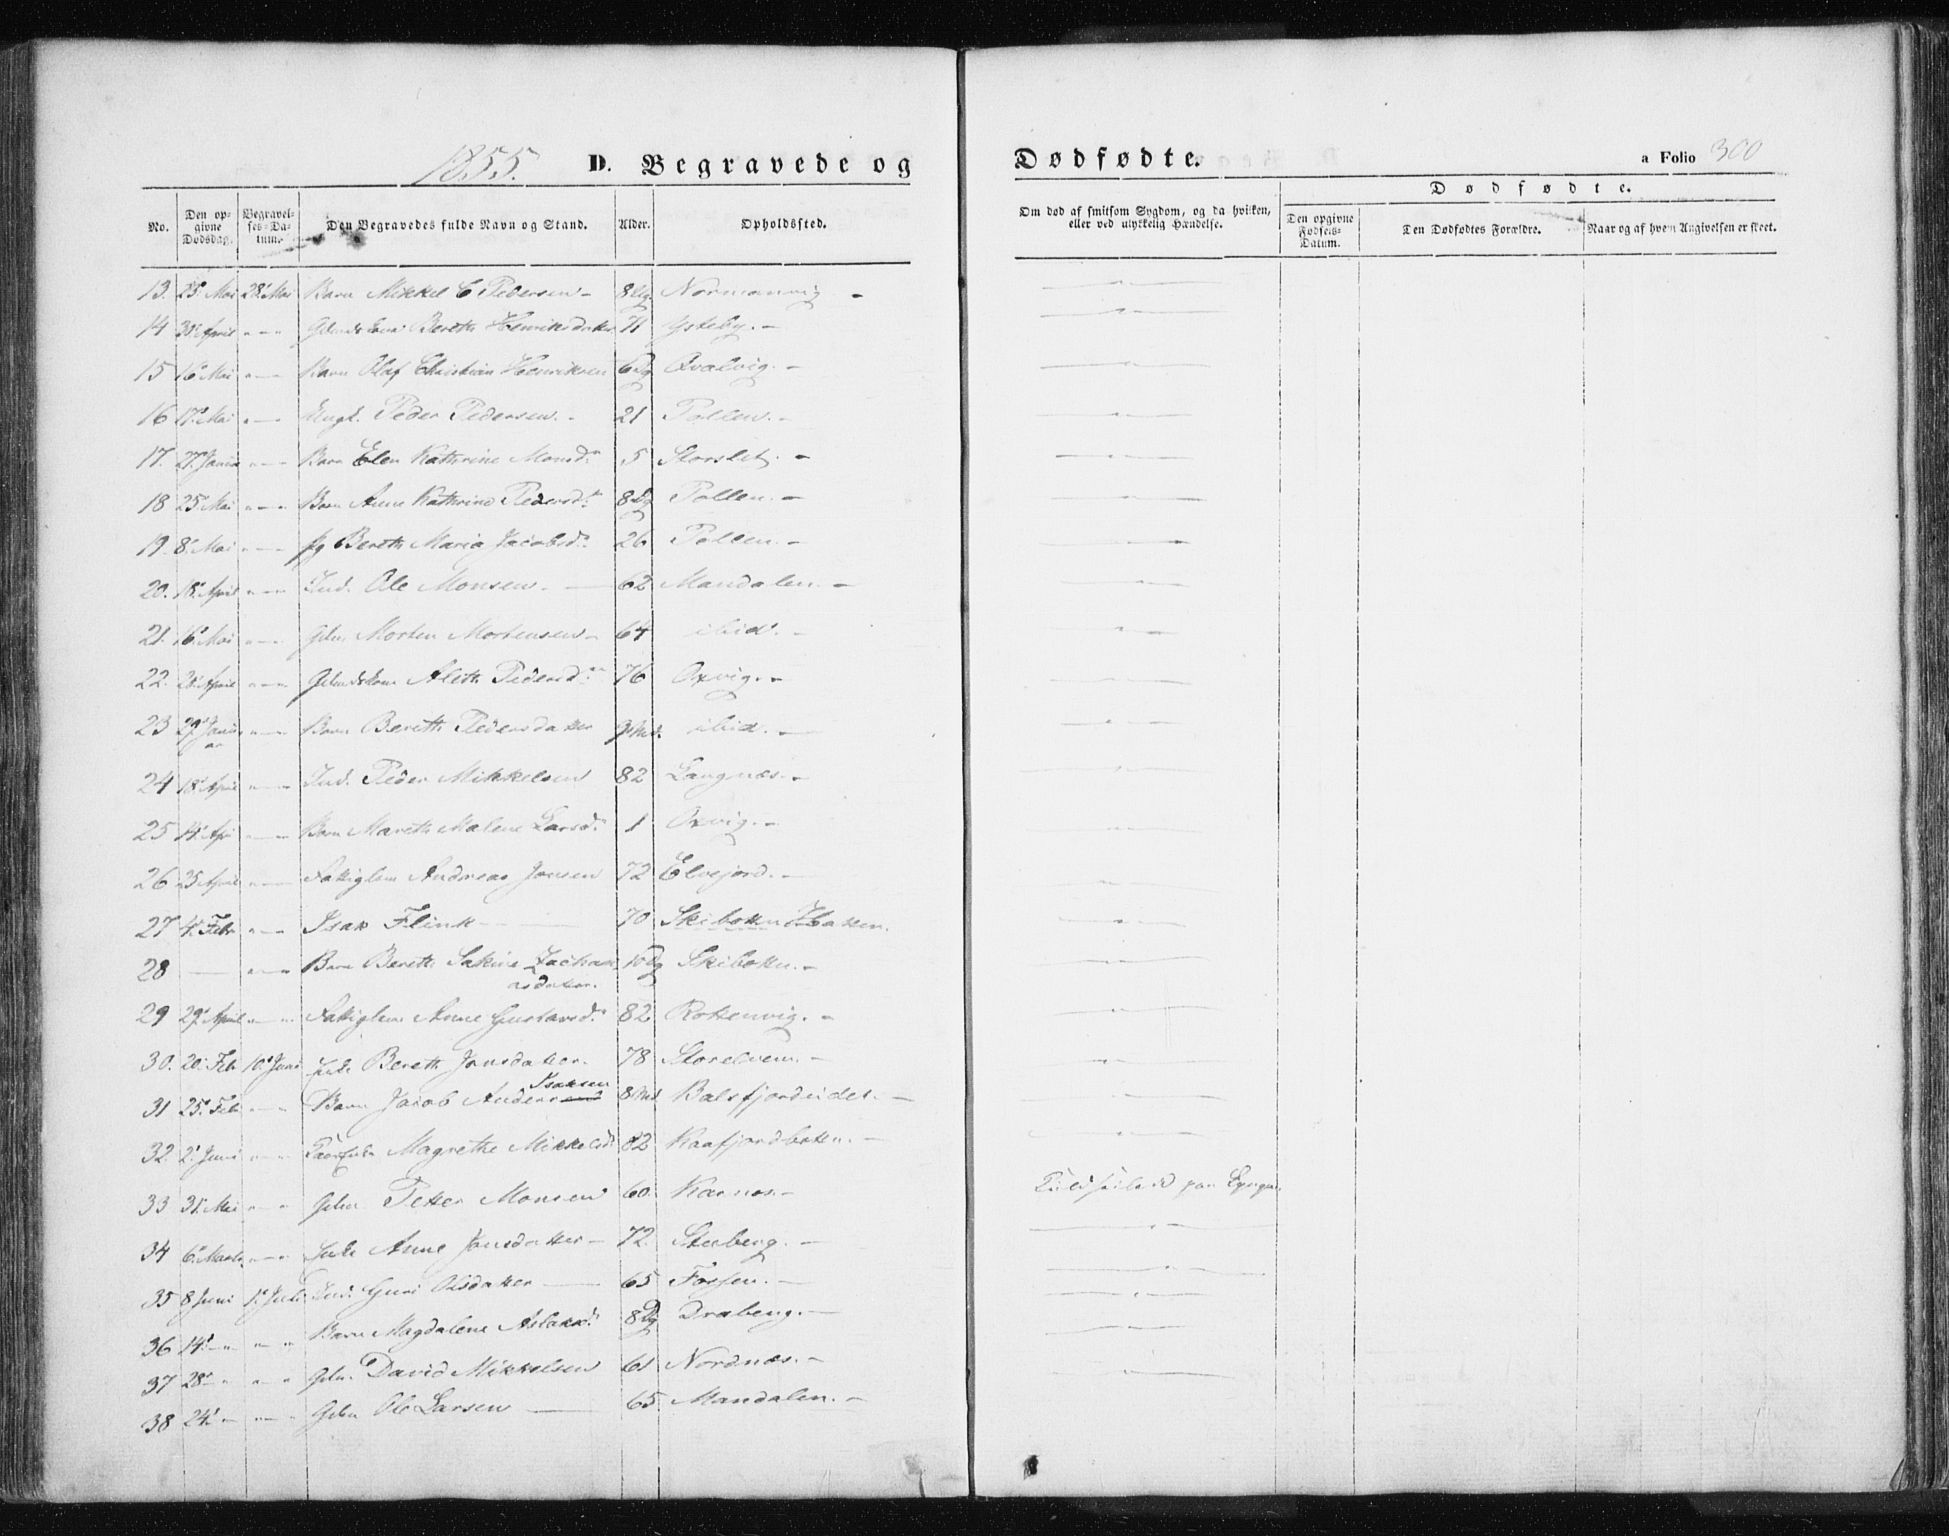 1855. D. Begravede og Dødfødte. a Folio 300
No. Den opgivne Dødsdag. Begravelses-Datum. Den Begravedes fulde Navn og Stand. Alder. Opholdssted. Om død af smitsom Sygdom, og da hvilken, eller ved ulykkelig Hændelse. Dødfødte. Den opgivne Fødsels-Datum. Den Dødfødtes Forældre. Naar og af hvem Angivelsen er skeet.
13. 25. Mai 28. Mai Barn Mikkel C Pedersen - 8 Normanvig -
14 30. April " — " Bereth Henriksdatter 71 Ysteby. -
15 16. Mai " — " Barn Olaf Christian Henriksen 6 Dg Qvalvig. -
16 17. Mai " — " Ungk. Peder Pedersen. - 21 Pollen. -
17. 27. Januar " — " Barn Elen Kathrine Monsd. 5 Storslet. -
18 25. Mai " — " Barn Anne Kathrine Pedersd. 8 Dg Pollen. -
19 8. Mai " — " Pg Bereth Maria Jacobsd. 26 Pollen. -
20. 18. April " — " Ind. Ole Monsen. — 62 Mandalen. -
21. 16. Mai " — " Gdm. Morten Mortensen - 64 ibid. -
22. 21. April " — " Gdmdskone Aleth Pedersd. 76 Oxvig. -
23 29. Januar " — " Barn Bereth Pedersdatter 9 Md. ibid. —
24 18. April " — " Ind. Peder Mikkelsen 82 Langnæs. -
25 14. Apr " — " Barn Mareth Malene Larsd. 1 Oxvig. -
26 25 April " — " Fattiglem Andreas Jonsen 72 Elvejord. -
27 4. Febr " — " Isak Flink — 70 Skibotten
28 — " — " Barn Bereth Sakine Zachari
asdatter. 10 Dg Skibotten. -
29 29. April " — " Fattiglem Anne Gustavsd. 82 Rottenvig. -
30. 20. Feb 10. Juni Enke Bereth Jonsdatter. 78 Storelven. -
31 25. Feb " — " Barn Jacob Anders Isaksen 8 Md Balsfjordeidet. -
32. 2. Juni " — " Magrethe Mikkelsd. 82 Kaafjordbotten. -
33 31. Mai " — " Gdm. Petter Monsen 60. Karnæs. - Kuldseilede paa Lyngen.
34 6. Marts " — " Enke Anne Jonsdatter - 72. Steberg. -
35 8 Juni 1. Juli Ind. Guri Olsdatter — 65 Forsen. -
36 14. — " " — " Barn Magdalene Aslaksd. 8 Dg Draberg. -
37 28. — " " — " Gdm. David Mikkelsen 61 Nordnæs. -
38 24. — " " — " Gdm Ole Larsen — 65. Mandalen. -